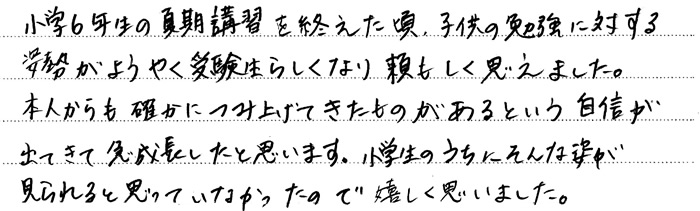 小学6年生の夏期講習を終えた頃、子供の勉強に対する
姿勢がようやく受験生らしくなり頼もしく思えました。
本人からも確かにつみ上げてきたものがあるという自信が
出てきて急成長したと思います。小学生のうちにそんな姿が
見られると思っていなかったので嬉しく思いました。